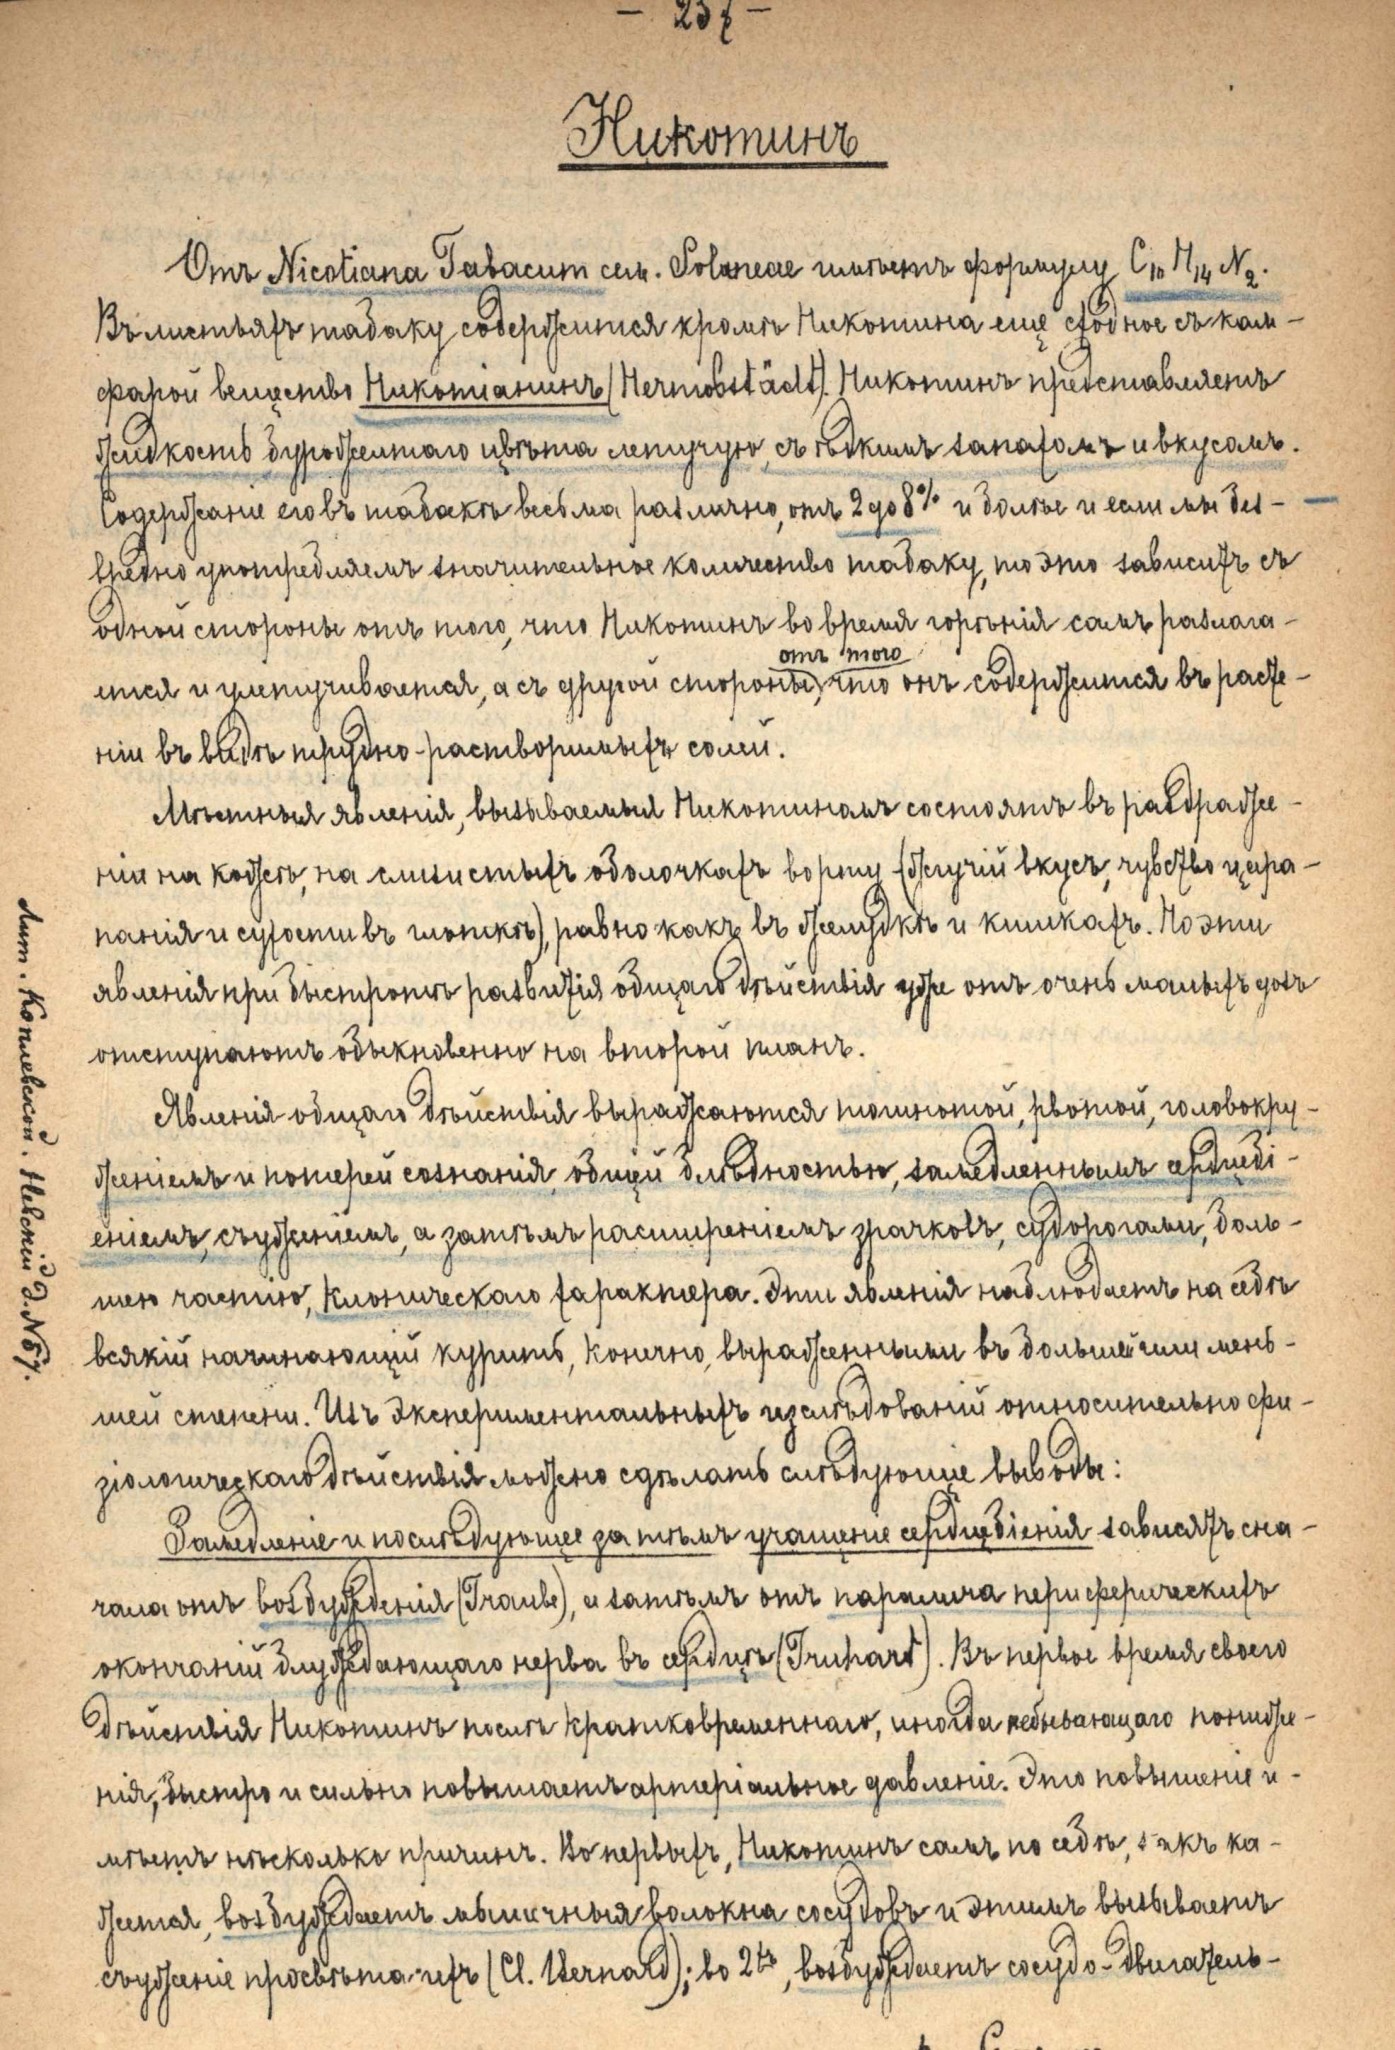 — 237 —
Никотинъ
Отъ Nicotiana Tabacum сем. Solaneae имѣетъ формулу C₁₀ H₁₄ N₂.
Въ листьяхъ табаку содержится кромѣ Никотина еще сходное съ кам-
фарой вещество Никотіанинъ (Hermbstädt). Никотинъ представляетъ
жидкость буро-желтаго цвѣта летучую, съ ѣдкимъ запахомъ и вкусомъ.
Содержаніе его въ табакѣ весьма различно, отъ 2 до 8% и болѣе и если мы без-
вредно употребляемъ значительное количество табаку, то это зависитъ съ
одной стороны отъ того, что Никотинъ во время горѣнія самъ разлага-
ется и улетучивается, а съ другой стороны, отъ того что онъ содержится въ расте-
ніи въ видѣ трудно-растворимыхъ солей.
Мѣстныя явленія, вызываемыя Никотиномъ состоятъ въ раздраже-
ніи на кожѣ, на слизистыхъ оболочкахъ во рту (жгучій вкусъ, чувство цара-
панія и сухости въ глоткѣ), равно какъ въ желудкѣ и кишкахъ. Но эти
явленія при быстротѣ развитія общаго дѣйствія уже отъ очень малыхъ дозъ
отступаютъ обыкновенно на второй планъ.
Явленія общаго дѣйствія выражаются тошнотой, рвотой, головокру-
женіемъ и потерей сознанія, общей блѣдностью, замедленнымъ сердцебі-
еніемъ, съуженіемъ, а затѣмъ расширеніемъ зрачковъ, судорогами, боль-
шею частію, клоническаго характера. Эти явленія наблюдаетъ на себѣ
всякій начинающій курить, конечно, выраженными въ большей или мень-
шей степени. Изъ экспериментальныхъ изслѣдованій относительно фи-
зіологическаго дѣйствія можно сдѣлать слѣдующіе выводы:
Замедленіе и послѣдующее затѣмъ учащеніе сердцебіенія зависятъ сна-
чала отъ возбужденія (Traube), а затѣмъ отъ паралича периферическихъ
окончаній блуждающаго нерва въ сердцѣ (Truhart). Въ первое время своего
дѣйствія Никотинъ послѣ кратковременнаго, иногда небывающаго пониже-
нія, быстро и сильно повышаетъ артеріальное давленіе. Это повышеніе и-
мѣетъ нѣсколько причинъ. Во первыхъ, Никотинъ самъ по себѣ, какъ ка-
жется, возбуждаетъ мышечныя волокна сосудовъ и этимъ вызываетъ
съуженіе просвѣта ихъ (Cl. Bernard); во 2хъ, возбуждаетъ сосудо-двигатель-
Лит. Коплевской. Невскій д. № 67.